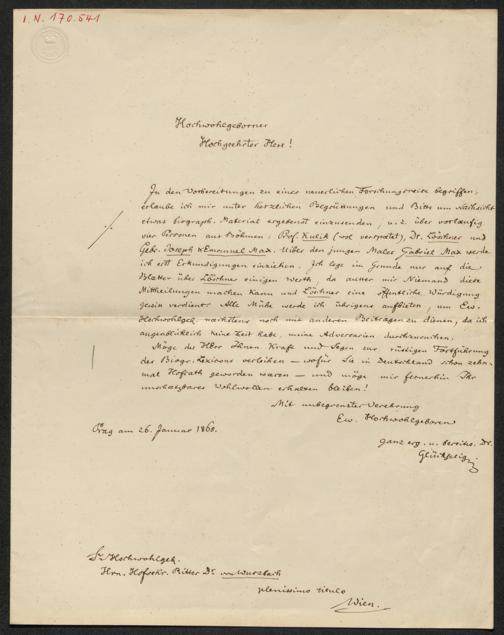 I.N. 170.541
Hochwohlgeborner
Hochgeehrter Herr!
In den Vorbereitungen zu einer neuerlichen Forschungsreise begriffen,
erlaube ich mir unter herzlichen Begrüssungen und Bitte um Nachsicht
etwas biograph. Material ergebenst einzusenden, u. z. über vorläufig
vier Personen aus Böhmen: Prof. Kulik (wol verspätet), Dr. Löschner und
Gebr. Joseph u Emanuel Max. Ueber den jungen Maler Gabriel Max werde
ich erst Erkundigungen einziehen. Ich lege im Grunde nur auf die
Blätter über Löschner einigen Werth, da ausser mir Niemand diese
Mittheilungen machen kann und Löschner eine öffentliche Würdigung
gewiss verdient. Alle Mühe werde ich übrigens aufbieten, um Ew.
Hochwohlgeb. nächstens noch mit anderen Beiträgen zu dienen, da ich
augenblicklich keine Zeit habe, meine Adversarien durchzusuchen.
Möge der Herr Ihnen Kraft und Segen zur rüstigen Fortführung
des Biogr. Lexicons verleihen — wofür Sie in Deutschland schon zehn-
mal Hofrath geworden wären — und möge mir fernerhin Ihr
unschätzbares Wohlwollen erhalten bleiben!
Mit unbegrenzter Verehrung
Ew. Hochwohlgeboren
Prag am 26. Januar 1868.
ganz erg. u. bereitw. Dr.
Glückselig
Sr Hochwohlgeb.
Hrn. Hofsekr. Ritter Dr. von Wurzbach
plenissimo titulo
Wien.